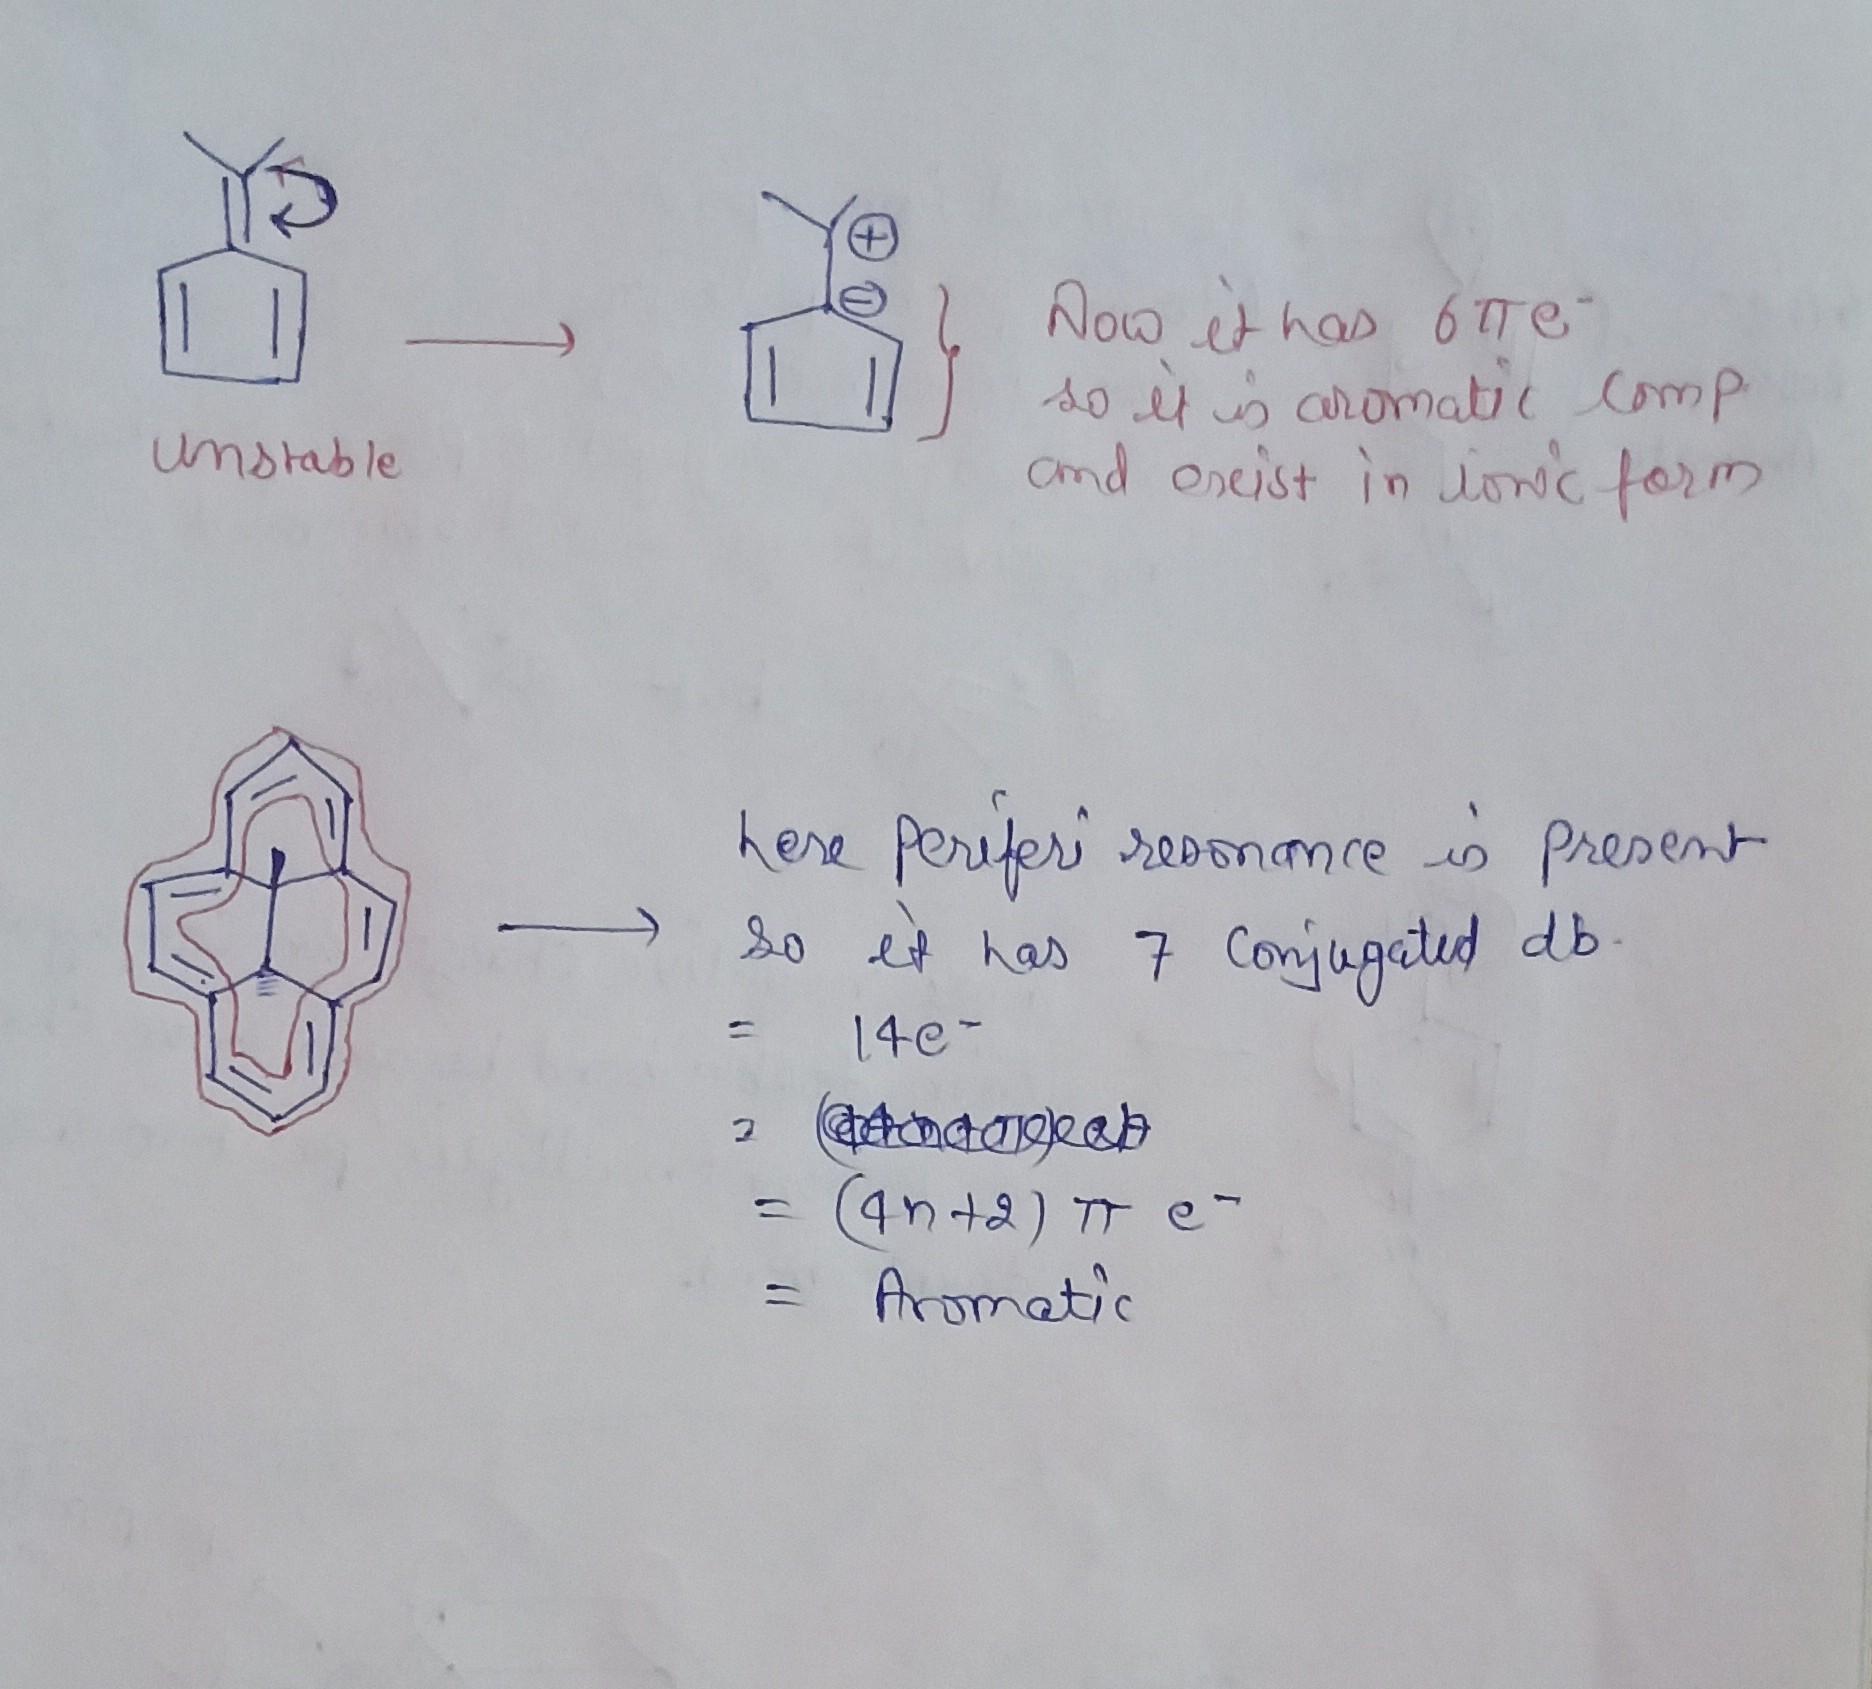 unstable
⊕
⊖
Now it has 6πe⁻
so it is aromatic comp.
and exist in ionic form
here periferi resonance is present
so it has 7 conjugated db.
= 14e⁻
=
= (4n+2) π e⁻
= Aromatic